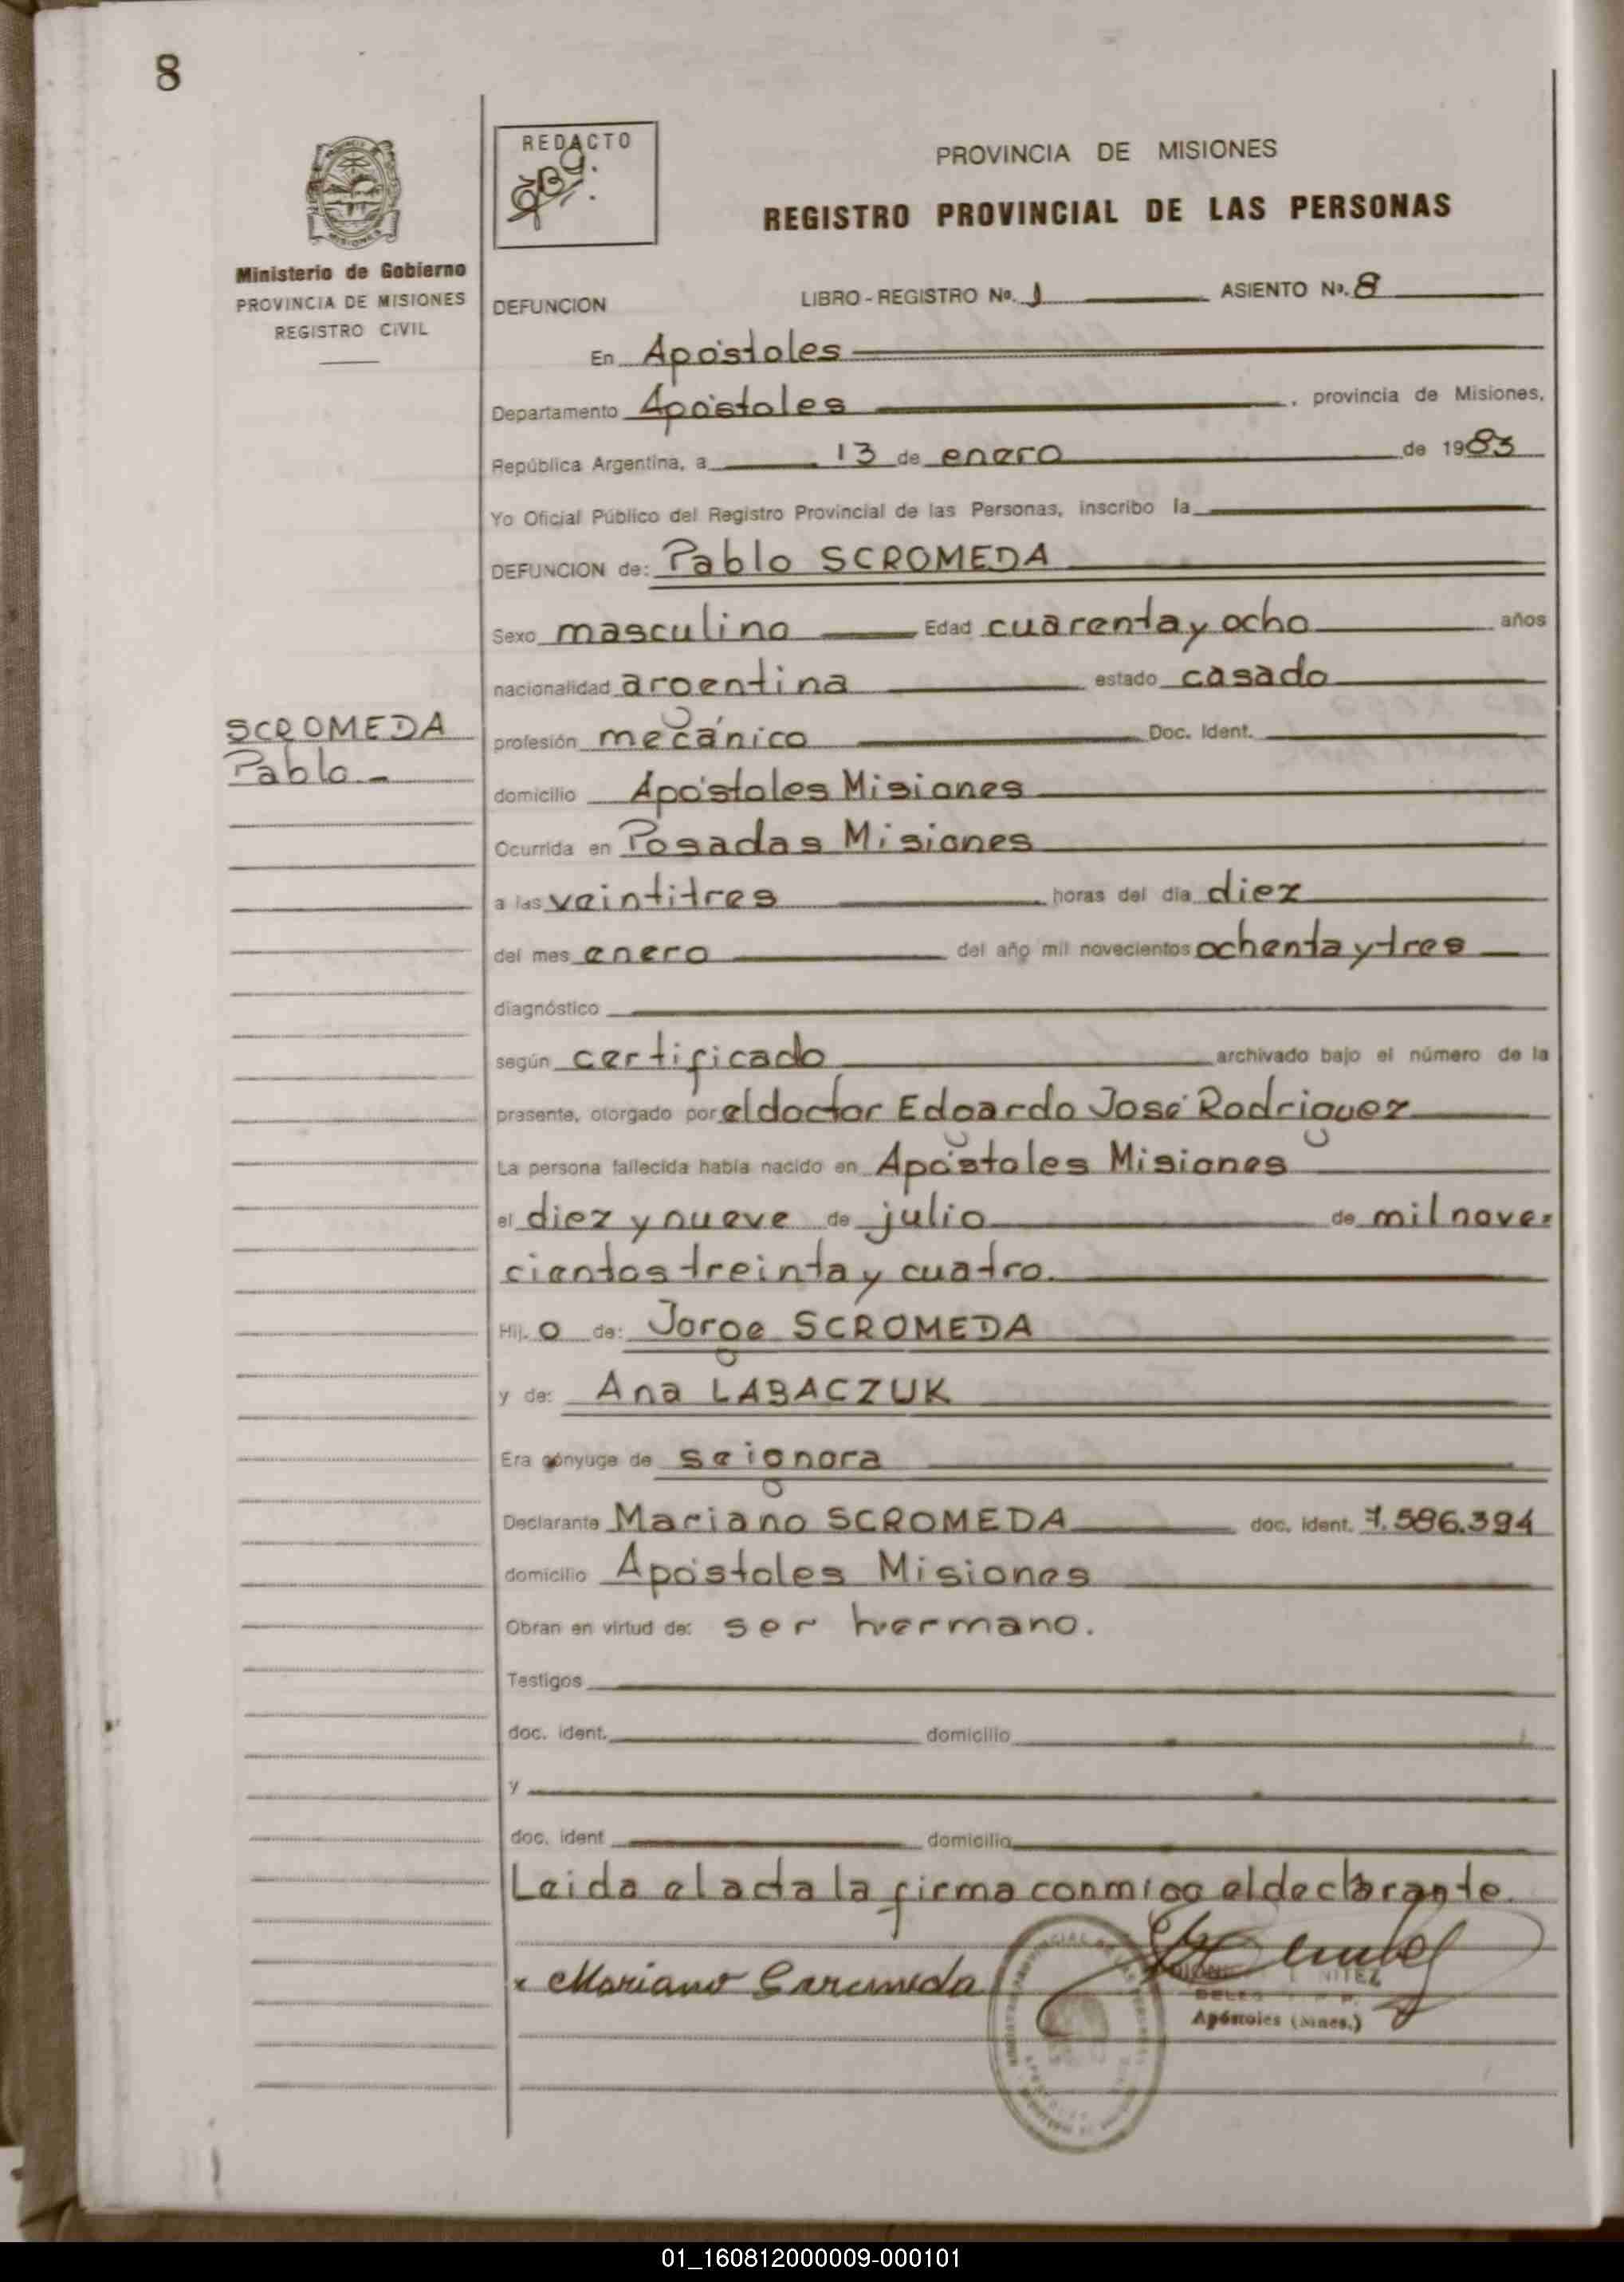 8
REDACTO
PROVINCIA DE MISIONES
REGISTRO PROVINCIAL DE LAS PERSONAS
MISIONES
Ministerio de Gobierno
PROVINCIA DE MISIONES
REGISTRO CIVIL
DEFUNCION LIBRO - REGISTRO No. 1 ASIENTO No. 8
En Apóstoles
Departamento Apóstoles, provincia de Misiones,
República Argentina, a 13 de enero de 1983
Yo Oficial Público del Registro Provincial de las Personas, inscribo la
DEFUNCION de: Pablo SCROMEDA
Sexo masculino Edad cuarenta y ocho años
nacionalidad argentina estado casado
SCROMEDA
Pablo.-
profesión mecánico Doc. Ident.
domicilio Apóstoles Misiones
Ocurrida en Posadas Misiones
a las veintitres horas del día diez
del mes enero del año mil novecientos ochenta y tres
diagnóstico
según certificado archivado bajo el número de la
presente, otorgado por el doctor Edgardo José Rodriguez
La persona fallecida había nacido en Apóstoles Misiones
el diez y nueve de julio de mil nove=
cientos treinta y cuatro.
Hij o de: Jorge SCROMEDA
y de: Ana LABACZUK
Era cónyuge de se ignora
Declarante Mariano SCROMEDA doc. ident. 7.586.394
domicilio Apóstoles Misiones
Obran en virtud de: ser hermano.
Testigos
doc. ident. domicilio
y
doc. ident domicilio
Leida el acta la firma conmigo el declarante.
x Mariano
Apóstoles (Mnes.)
01_160812000009-000101